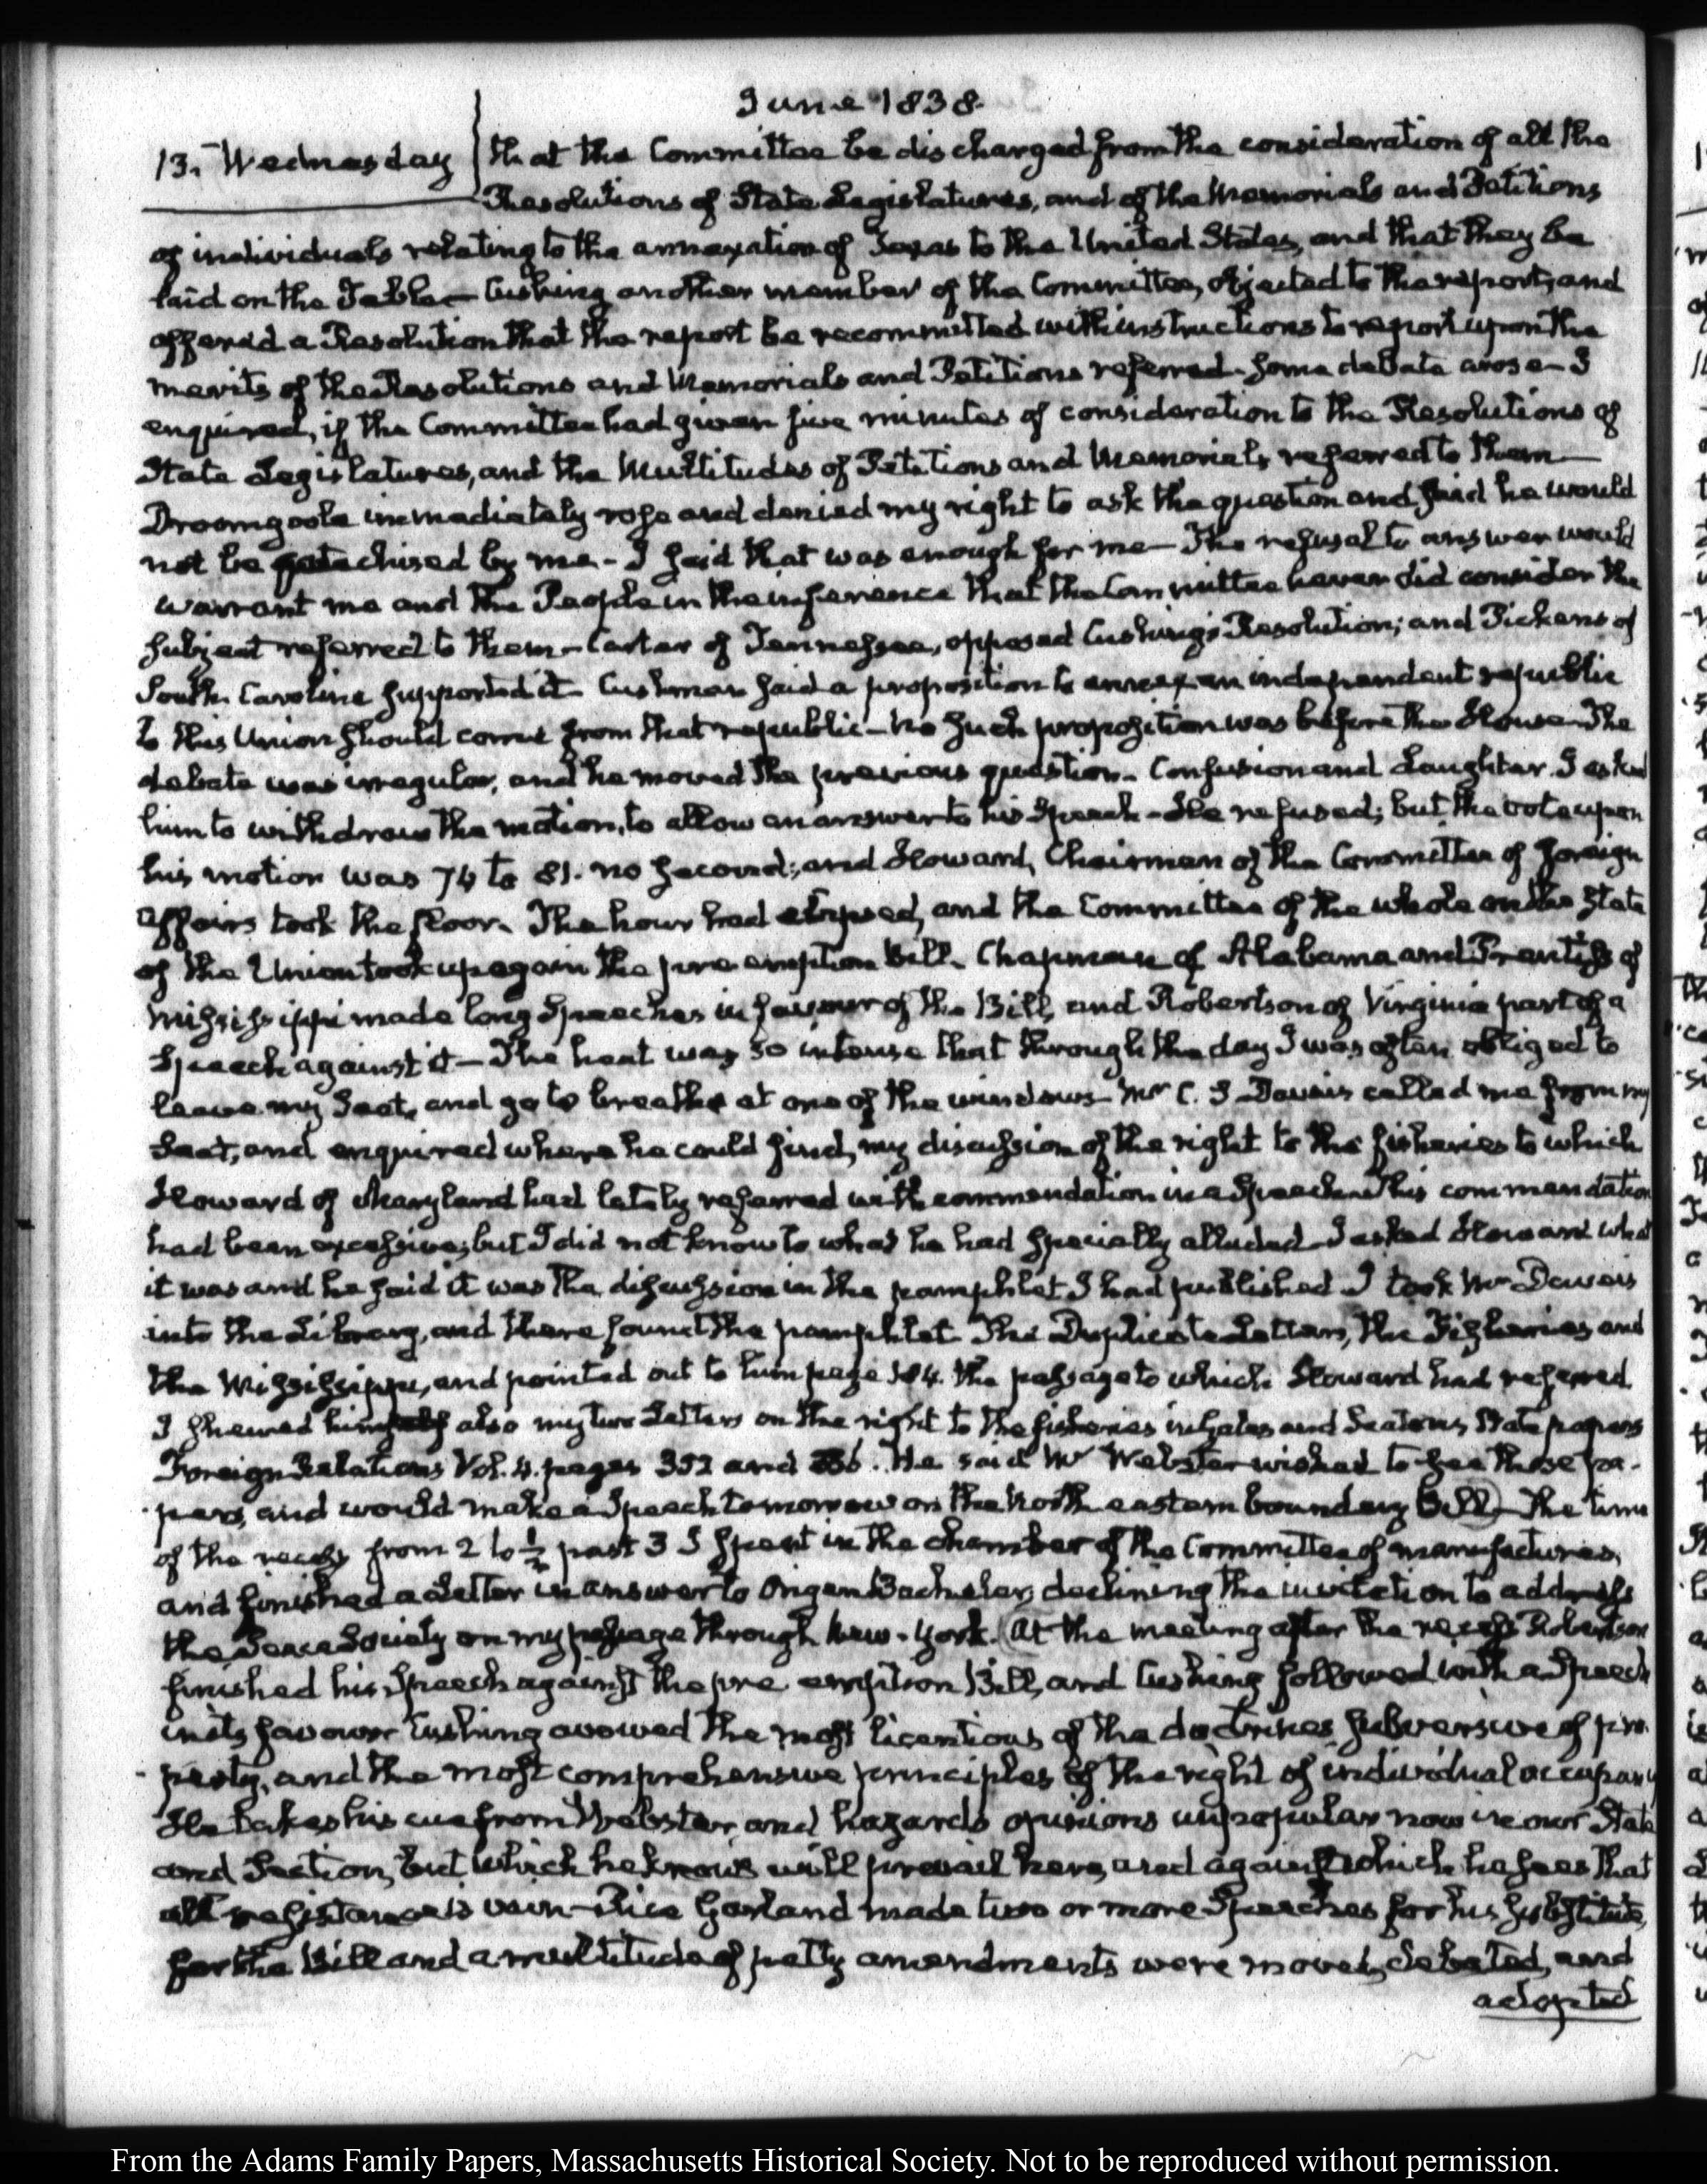 June 1838.
13. Wednesday that the Committee be discharged from the consideration of all the
Resolutions of State Legislatures, and of the Memorials and Petitions
of individuals relating to the annexation of Texas to the United States, and that they be
laid on the Table — Cushing another member of the Committee, objected to the report, and
offered a Resolution that the report be recommitted with instructions to report upon the
merits of the Resolutions and Memorials and Petitions referred. Some debate arose — I
enquired, if the Committee had given five minutes of consideration to the Resolutions of
State Legislatures, and the Multitudes of Petitions and Memorials referred to them —
Dromgoole immediately rose and denied my right to ask the question and said he would
not be catechised by me - I said that was enough for me — The refusal to answer would
warrant me and the People in the inference that the Committee never did consider the
subject referred to them — Carter of Tennessee, opposed Cushing's Resolution; and Pickens of
South Carolina supported it — Cushman said a proposition to annex an independent republic
to this Union should come from that republic — No such proposition was before the House — The
debate was irregular, and he moved the previous question. Confusion and Laughter. I asked
him to withdraw the motion, to allow an answer to his Speech — He refused; but the vote upon
his motion was 74 to 81. no second; and Howard, Chairman of the Committee of foreign
affairs took the floor. The hour had elapsed, and the Committee of the whole on the State
of the Union took up again the pre emption Bill. Chapman of Alabama and Prentiss of
Mississippi made long Speeches in favour of the Bill, and Robertson of Virginia part of a
Speech against it — The heat was so intense that through the day I was often obliged to
leave my Seat, and go to breathe at one of the windows — Mr C. S. Daveis called me from my
Seat, and enquired where he could find, my discussion of the right to the fisheries to which
Howard of Maryland had lately referred with commendation in a Speech. This commendation
had been excessive, but I did not know to what he had specially alluded — I asked Howard what
it was and he said it was the discussion in the pamphlet I had published. I took Mr Daveis
into the Library, and there found the pamphlet The Duplicate Letters, the Fisheries and
the Mississippi, and pointed out to him page 184. the passage to which Howard had referred
I shewed him also my two Letters on the right to the fisheries in Gales and Seatons State papers
Foreign Relations Vol. 4. pages 352 and . He said Mr Webster wished to see those pa-
pers, and would make a Speech tomorrow on the North eastern boundary Bill — The time
of the recess from 2 to ½ past 3 I spent in the chamber of the Committee of manufactures,
and finished a Letter in answer to Origen Bacheler, declining the invitation to address
the Peace Society on my passage through New-York. At the meeting after the recess Robertson
finished his Speech against the pre emption Bill, and Cushing followed with a Speech
in its favour Cushing avowed the most licentious of the doctrines subversive of pro-
perty, and the most comprehensive principles of the right of individual occupancy
He takes his cue from Webster, and hazards opinions unpopular now in our State
and Section, but which he knows will prevail here, and against which he sees that
all resistance is vain — Rice Garland made two or more Speeches for his substitute,
for the Bill and a multitude of petty amendments were moved, debated, and
adopted
From the Adams Family Papers, Massachusetts Historical Society. Not to be reproduced without permission.